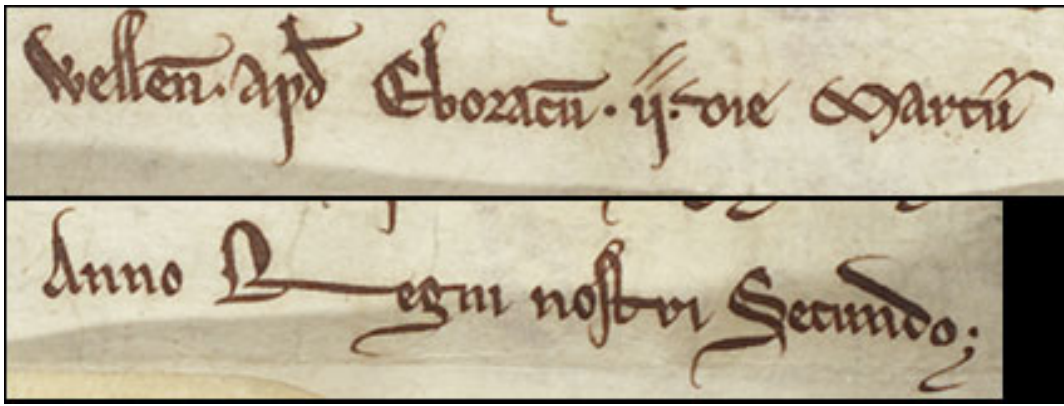 Wellen̄. apd̄ Eboracū. ij. die Martij
Anno Regni nostri Secundo;